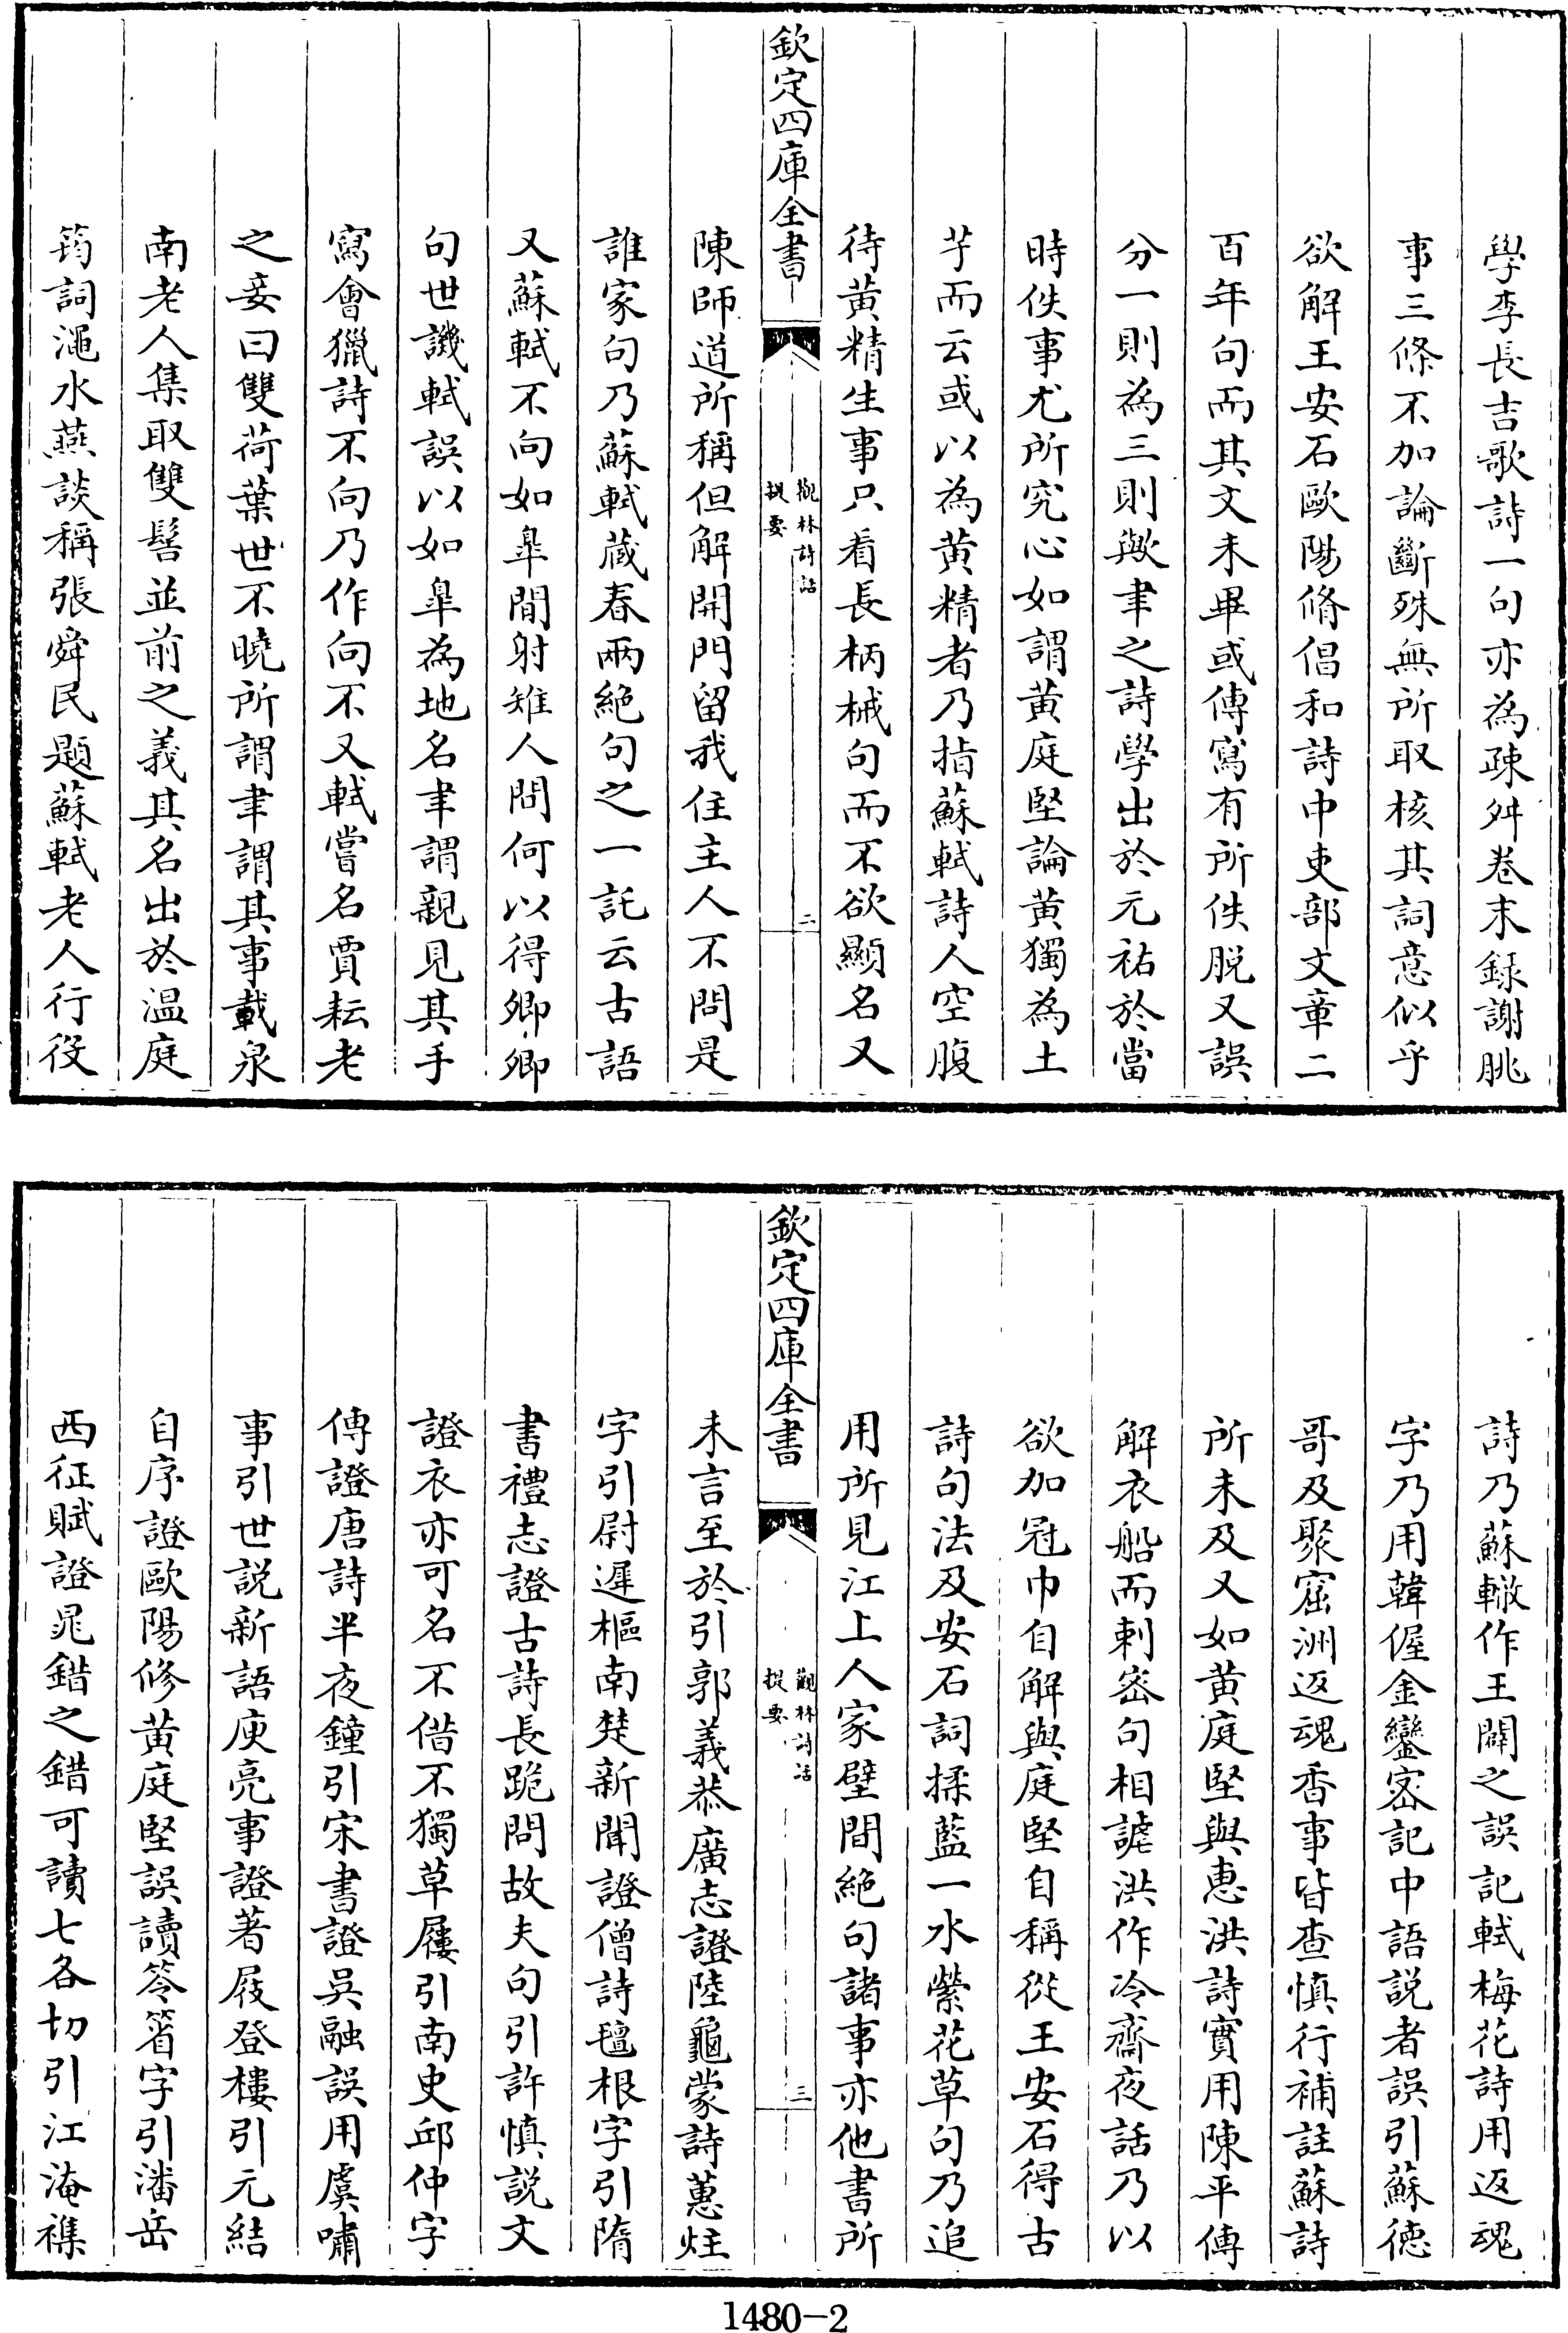 學李長吉歌詩一句亦為疎舛卷末録謝朓
事三條不加論斷殊無所取核其詞意似乎
欲解王安石歐陽脩倡和詩中吏部文章二
百年句而其文未畢或傳寫有所佚脱又誤
分一則為三則歟聿之詩學出於元祐於當
時佚事尤所究心如謂黄庭堅論黄獨為土
芋而云或以為黄精者乃指蘇軾詩人空腹
待黄精生事只看長柄械句而不欲顯名又
欽定四庫全書
觀林詩話
提要
二
陳師道所稱但解開門留我住主人不問是
誰家句乃蘇軾藏春兩絶句之一託云古語
又蘇軾不向如臯閒射雉人間何以得卿卿
句世譏軾誤以如臯為地名聿謂親見其手
寫會獵詩不向乃作向不又軾嘗名賈耘老
之妾曰雙荷葉世不曉所謂聿謂其事載泉
南老人集取雙髻並前之義其名出於温庭
筠詞澠水燕談稱張舜民題蘇軾老人行役
詩乃蘇轍作王闢之誤記軾梅花詩用返魂
字乃用韓偓金鑾宻記中語説者誤引蘇德
哥及聚窟洲返魂香事皆查慎行補註蘇詩
所未及又如黄庭堅與惠洪詩實用陳平傳
解衣船而刺宻句相謔洪作冷齋夜話乃以
欲加冠巾自解與庭堅自稱從王安石得古
詩句法及安石詞揉藍一水縈花草句乃追
用所見江上人家壁間絶句諸事亦他書所
欽定四庫全書
觀林詩話
提要
三
未言至於引郭義恭廣志證陸龜蒙詩蕙炷
字引尉遲樞南楚新聞證僧詩氊根字引隋
書禮志證古詩長跪問故夫句引許慎説文
證衣亦可名不借不獨草屨引南史邱仲字
傳證唐詩半夜鐘引宋書證吳融誤用虞嘯
事引世説新語庾亮事證著屐登樓引元結
自序證歐陽修黄庭堅誤讀笭箵字引潘岳
西征賦證鼂錯之錯可讀七各切引江淹襍
1480-2